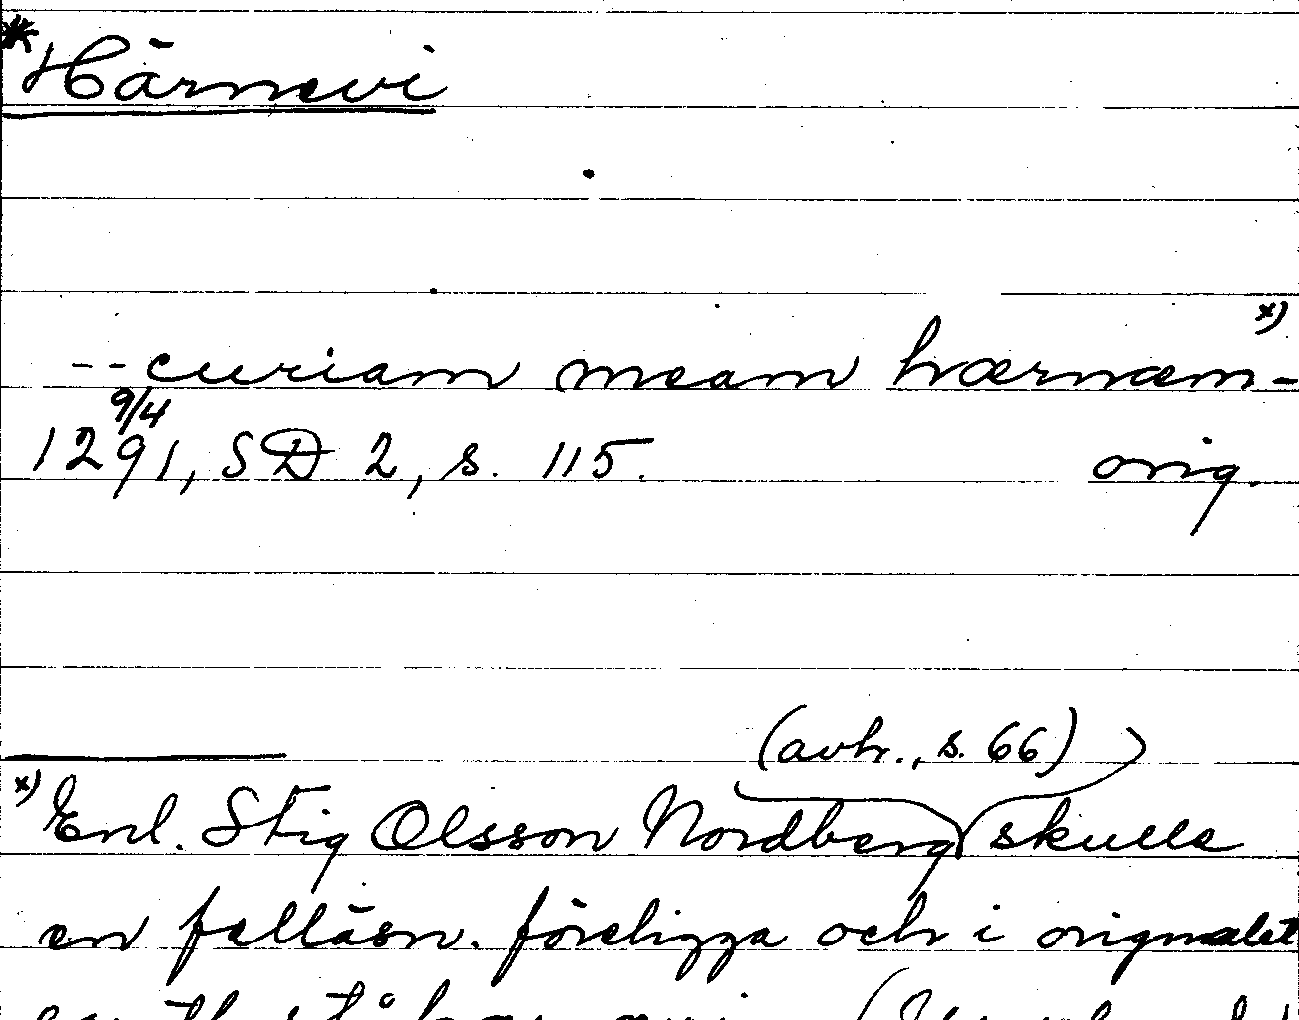 *Härnevi
x)
--curiam meam hærnæm-
9/4
1291, SD 2, s. 115. orig.
(avh., s. 66)
x) Enl. Stig Olsson Nordberg skulle
en felläsn. föreligga och i originalet